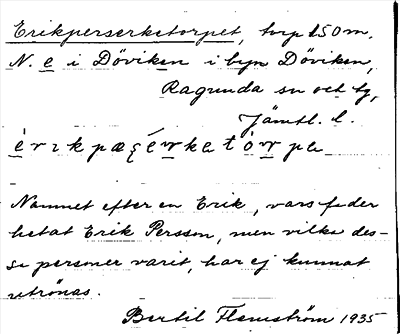 Erikperserketorpet, torp 150 m.
N. e i Döviken i byn Döviken,
Ragunda sn och tg,
Jämtl. l.
Namnet efter en Erik, vars fader
hetat Erik Persson, men vilka des-
sa personer varit, har ej kunnat
utrönas.
Bertil Flemström 1935